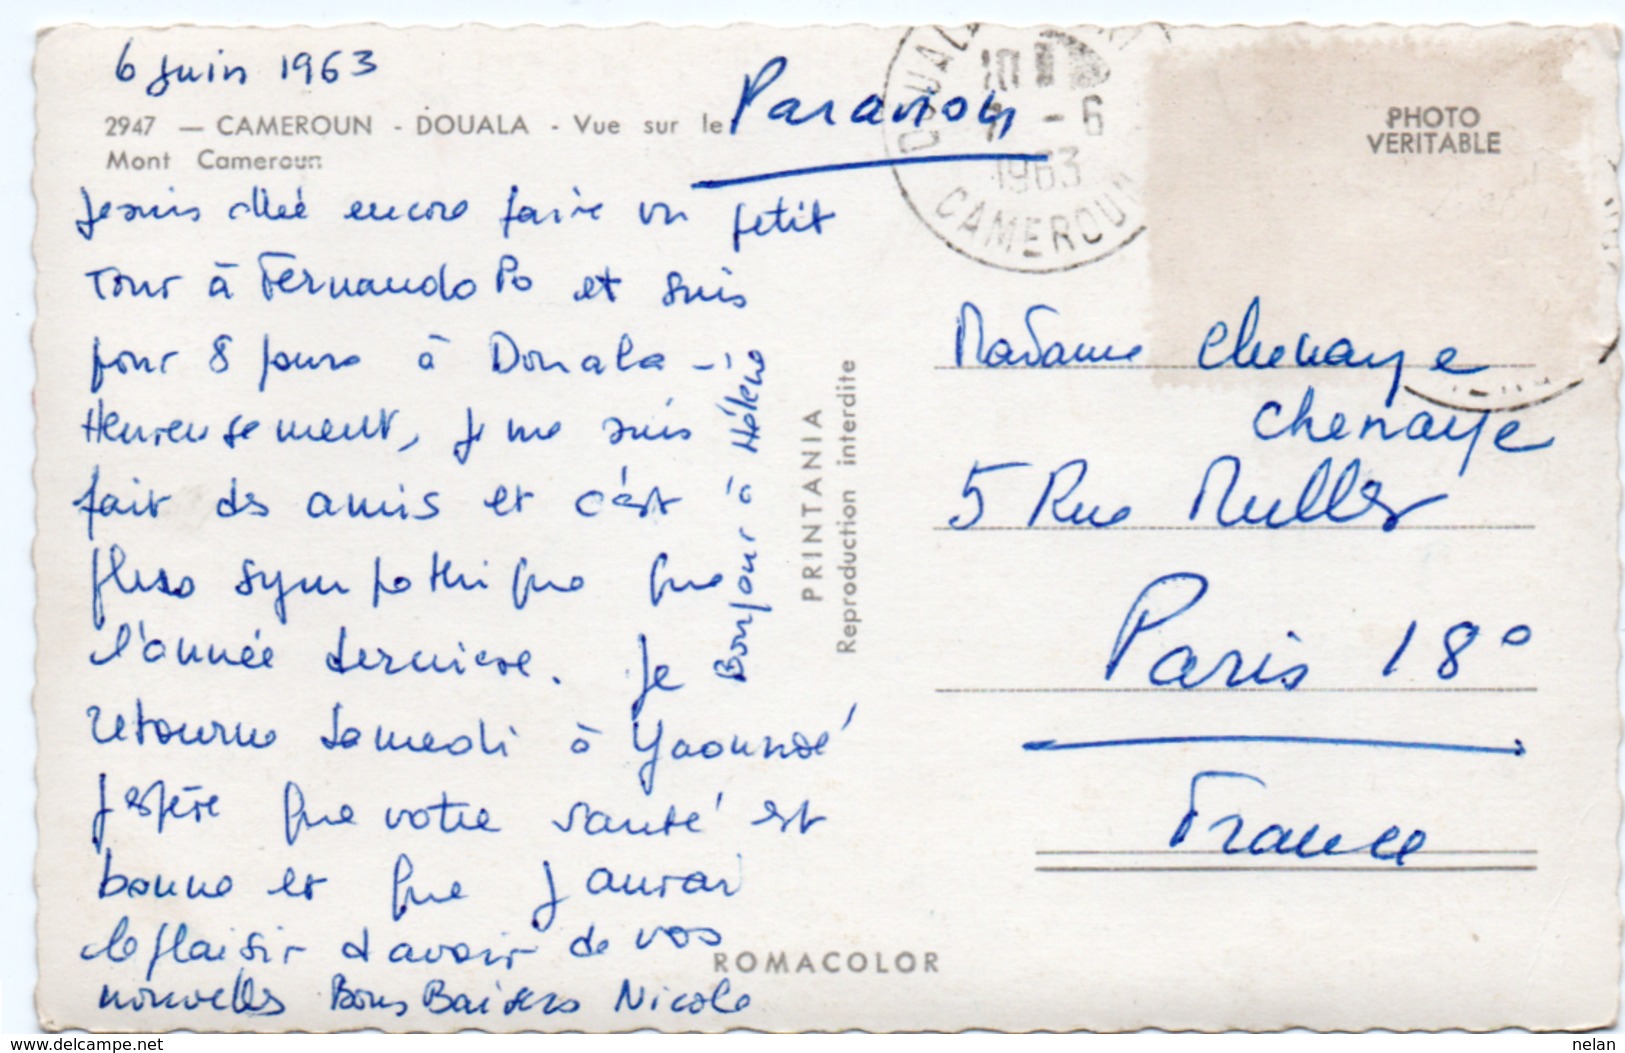 6 Juin 1963
2947 — CAMEROUN - DOUALA - Vue sur le
Mont Cameroun
Par avion
DOUALA
10
7 -6
1963
CAMEROUN
PHOTO
VERITABLE
Je suis allée encore faire un petit
tour à Fernando Po et suis
pour 8 jours à Douala -
Heureusement, je me suis
fait des amis et c'est
plus sympathique que
l'année dernière. Je
retourne samedi à Yaoundé
J'espère que votre santé est
bonne et que j'aurai
le plaisir d'avoir de vos
nouvelles Bons Baisers Nicole
Bonjour à Hélène
PRINTANIA
Reproduction interdite
Madame Chenaye
Chenaye
5 Rue Muller
Paris 18°
France
ROMACOLOR
www.delcampe.net
nelan